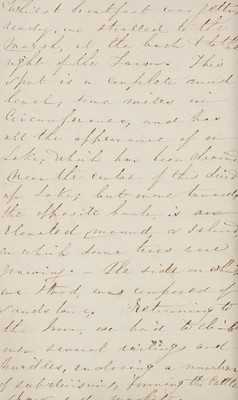 Whilst breakfast was getting
ready, we strolled to the
Marsh, at the back & to the
right of the Farm. This
spot is a complete mud
some miles in
Circumference, and has
all the appearance of a
Lake, which has been drained
Near the centre of this dried
up Lake; but more towards
the opposite bank, is an
elevated mound, or Island,
on which some trees were
growing. - The side on which
we stood, was composed of
sandstone. Returning to
the Inn, we had to climb
over several railings and
hurdles, enclosing a number
of subdivisions, forming the Cattle